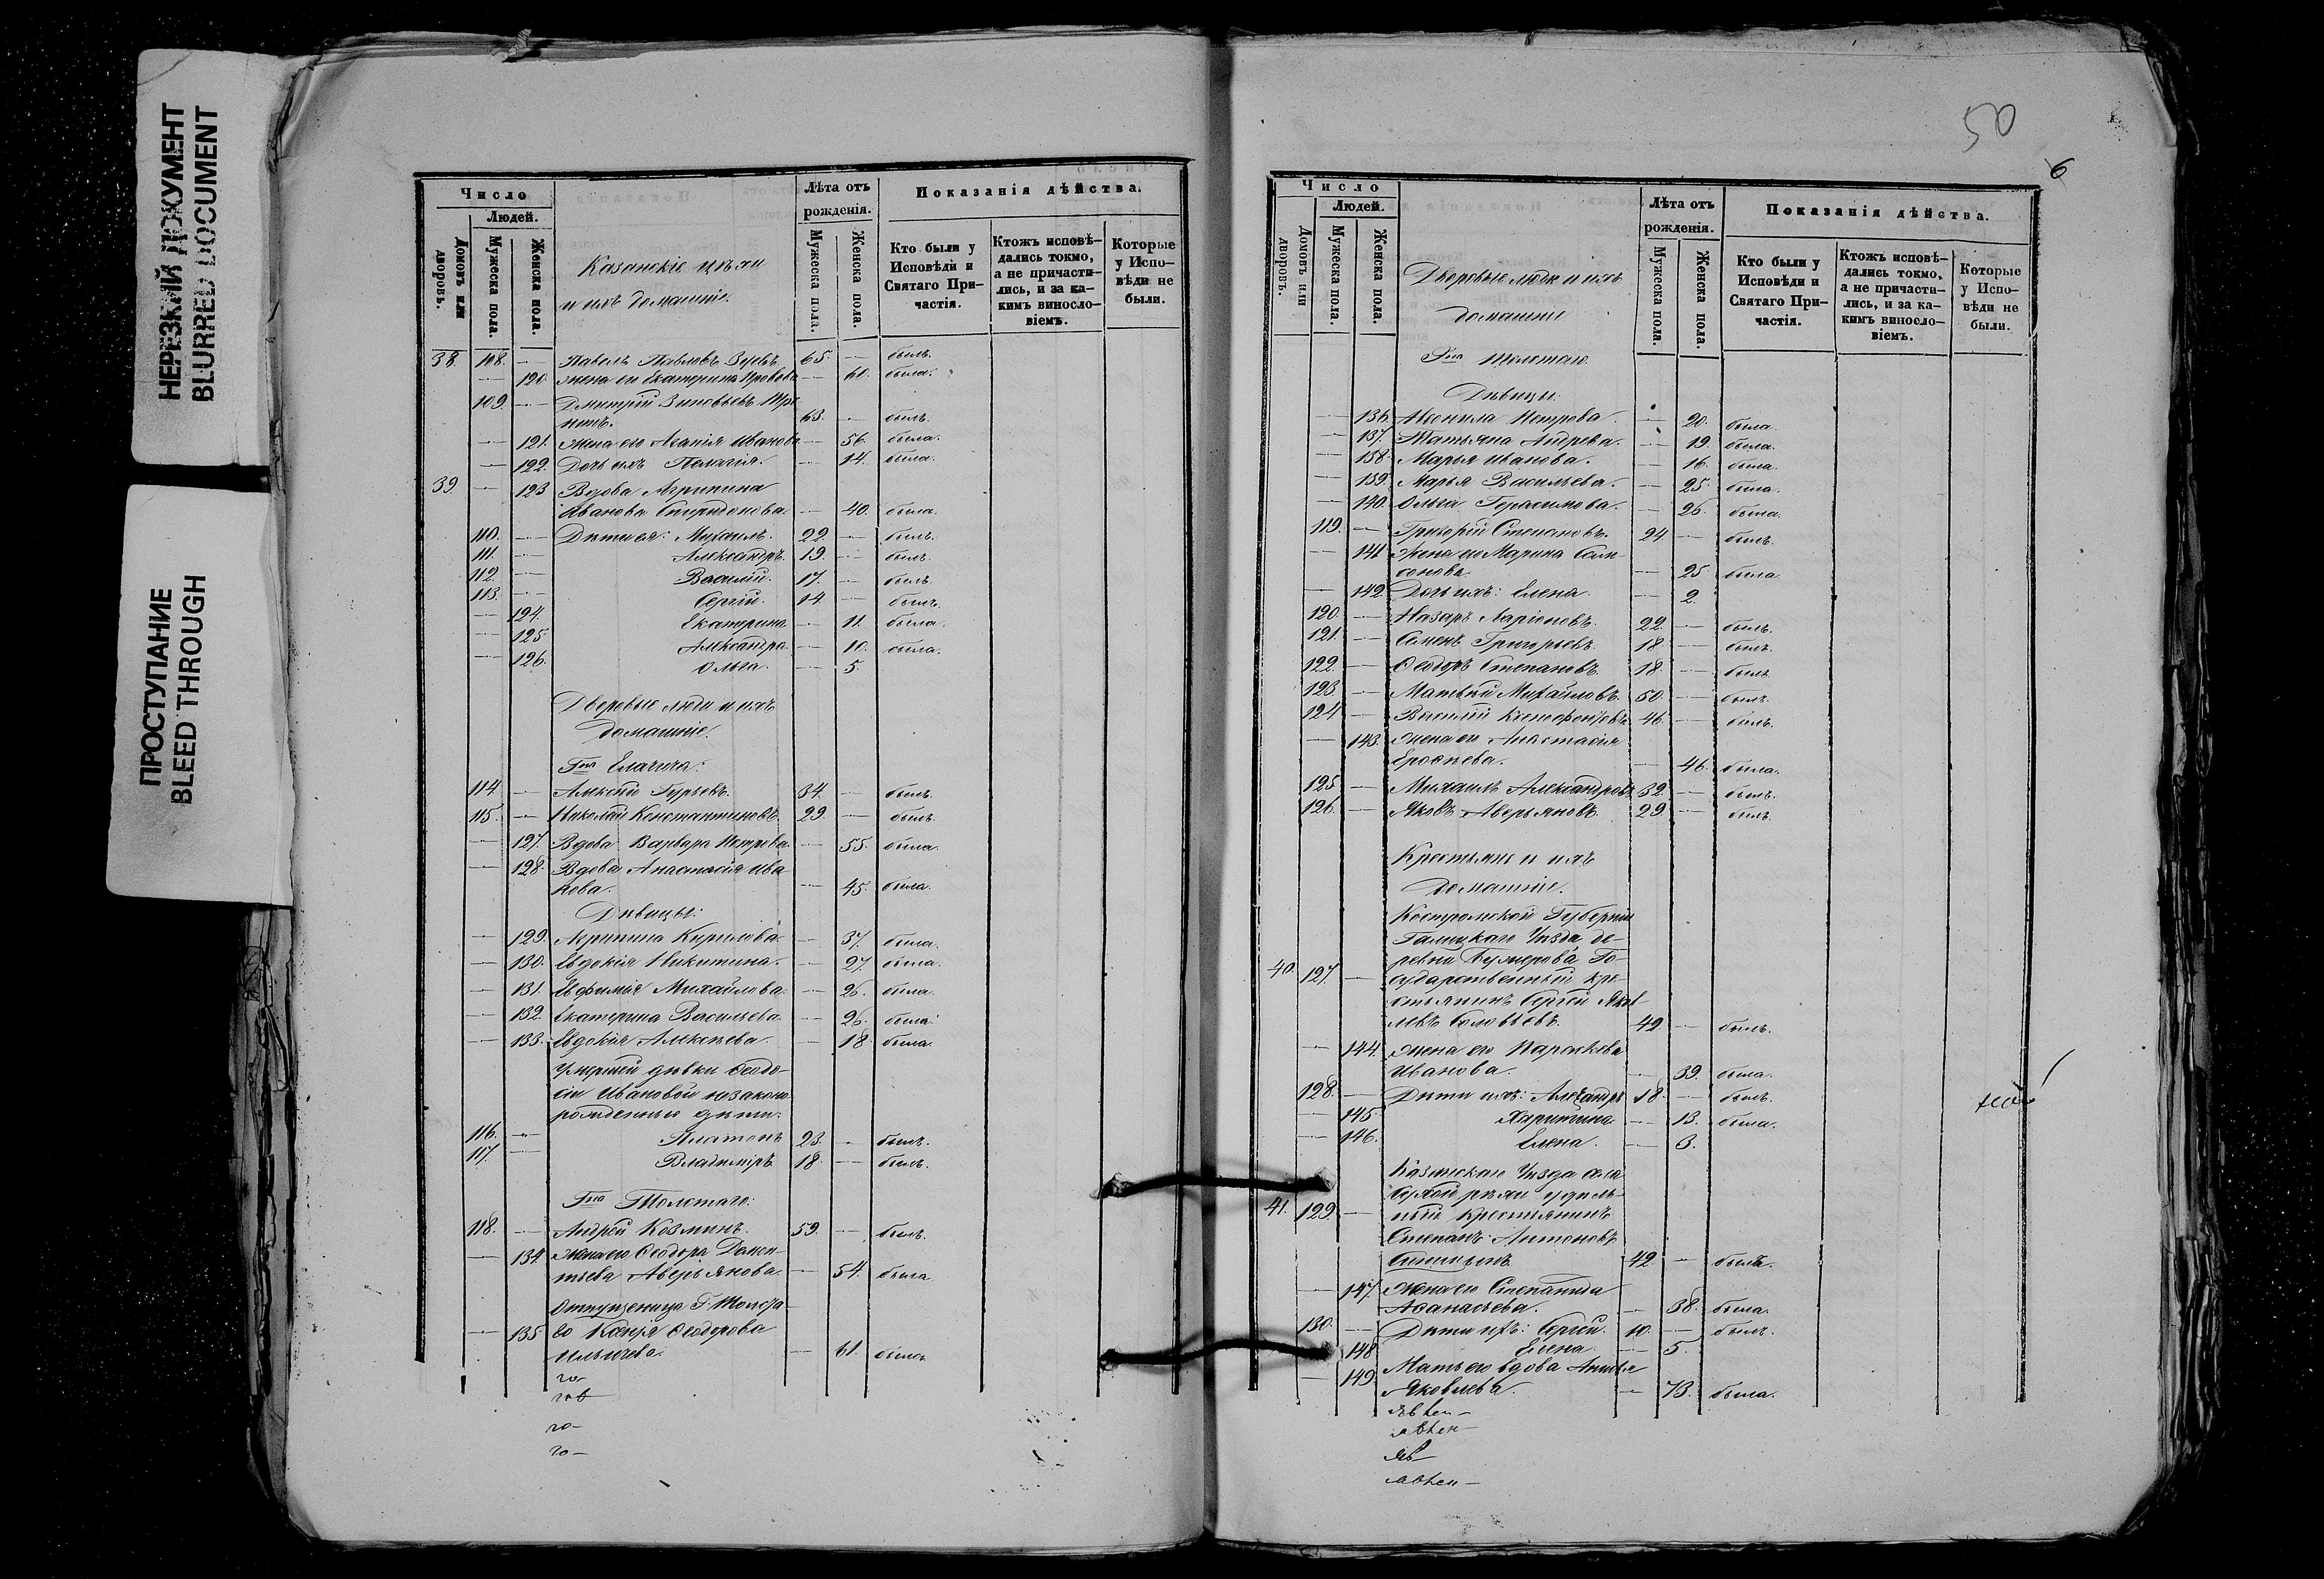 НЕРЕЗКИЙ ДОКУМЕНТ
BLURRED DOCUMENT
ПРОСТУПАНИЕ
BLEED THROUGH
Число
Людей.
Домовъ или дворовъ.
Мужеска пола.
Женска пола.
Казанскіе цѣхи
и ихъ домашніе.
Лѣта отъ рожденія.
Мужеска пола.
Женска пола.
Показанія дѣйства.
Кто были у Исповѣди и Святаго Причастія.
Ктожъ исповѣ-
дались токмо,
а не причасти-
лись, и за ка-
кимъ виносло-
віемъ.
Которые
у Испо-
вѣди не
были.
38. 108. — Павелъ Павловъ Зуевъ. 65. — былъ.
— 120. жена его Екатерина — 60. была.
109. — Дмитрій Зиновьевъ
63. — былъ.
— 121. жена его Агапія Иванова — 56. была.
— 122. Дочь ихъ Пелагія. — 14. была.
39. — 123 Вдова Агрипина
Иванова Спиридонова. — 40. была.
110. — Дѣти ея: Михаилъ. 22. — былъ.
111. — Александръ. 19. — былъ.
112. — Василій. 17. — былъ.
113. — Сергій. 14. — былъ.
— 124. Екатерина — 11. была.
— 125 Александра. — 10. была.
— 126. Ольга. — 5.
Дворовые люди и ихъ
домашніе.
Гна Елагича:
114. — Алексій Гурьевъ. 34. — былъ.
115. — Николай Константиновъ. 29 — былъ.
— 127. Вдова Варвара Петрова. — 55. была.
— 128. Вдова Анастасія Ива
нова. — 45. была.
Дѣвицы:
— 129. Агрипина Кирилова. — 37. была.
— 130. Евдокія Никитина. — 27. была.
— 131. Евфимія Михайлова. — 26. была.
— 132. Екатерина Васильева. — 26. была.
— 133. Евдокія Алексѣева. — 18. была.
Умершей дѣвки Ѳеодо-
сіи Ивановой незаконно
рожденные дѣти:
116. — Платонъ 23. — былъ.
117. — Владиміръ 18. — былъ.
Гна Толстаго:
118. — Андрей Козминъ. 59. — былъ.
— 134. жена его Ѳеодора
Аверьянова. — 54. была
Отпущеница Г. Толста
— 135. го Ксенія Ѳеодорова
Ильичева. — 61. была
го-
го-
го-
50
6
Число
Людей.
Домовъ или дворовъ.
Мужеска пола.
Женска пола.
Дворовые люди и ихъ
домашніе
Лѣта отъ рожденія.
Мужеска пола.
Женска пола.
Показанія дѣйства.
Кто были у Исповѣди и Святаго Причастія.
Ктожъ исповѣ-
дались токмо,
а не причасти-
лись, и за ка-
кимъ виносло-
віемъ.
Которые
у Испо-
вѣди не
были.
Гна Толстаго
Дѣвицы:
— 136. Петрова. — 20. была.
— 137. Татьяна Андреева. — 19. была.
— 138. Марья Иванова. — 16. была.
— 139. Марья Васильева. — 25. была.
— 140. Ольга Герасимова. — 26. была.
119. — Григорій Степановъ. 24 — былъ.
— 141 Жена его Марина Сам-
сонова. — 25 была.
— 142. Дочь ихъ: Елена. — 2.
120. — Назаръ Ларіоновъ. 22. — былъ.
121. — Семенъ Григорьевъ. 18. — былъ.
122. — Ѳеодоръ Степановъ. 18. — былъ
123. — Матвей Михайловъ. 50. — былъ.
124 — Василій Ксенофонтовъ 46. — былъ.
— 143. жена его Анастасія
Ерофѣева. — 46. была.
125 — Михаилъ Александровъ 32. — былъ.
126. — Яковъ Аверьяновъ. 29. — былъ.
Крестьяне и ихъ
домашніе.
Костромской Губерніи
Галицкаго Уѣзда де-
ревни Го-
40. 127. — сударственный кре-
стьянинъ Сергей Яков-
левъ Соловьевъ. 42 — былъ.
— 144. жена его Парасковья
Иванова. — 39. была.
128. — Дѣти ихъ: Александръ 18. — былъ.
— 145. Харитина — 13. была.
— 146. Елена. — 3.
Казанскаго Уѣзда села
Сухой рѣки удѣль-
41. 129. — ный крестьянинъ
Степанъ Антоновъ
42 — былъ.
— 147. жена его Степанида
Аѳанасьева. — 38. была.
130. — Дѣти ихъ: Сергій. 10. — былъ.
— 148 Елена. — 5.
— 149. Мать его вдова
Яковлева. — 73. была.